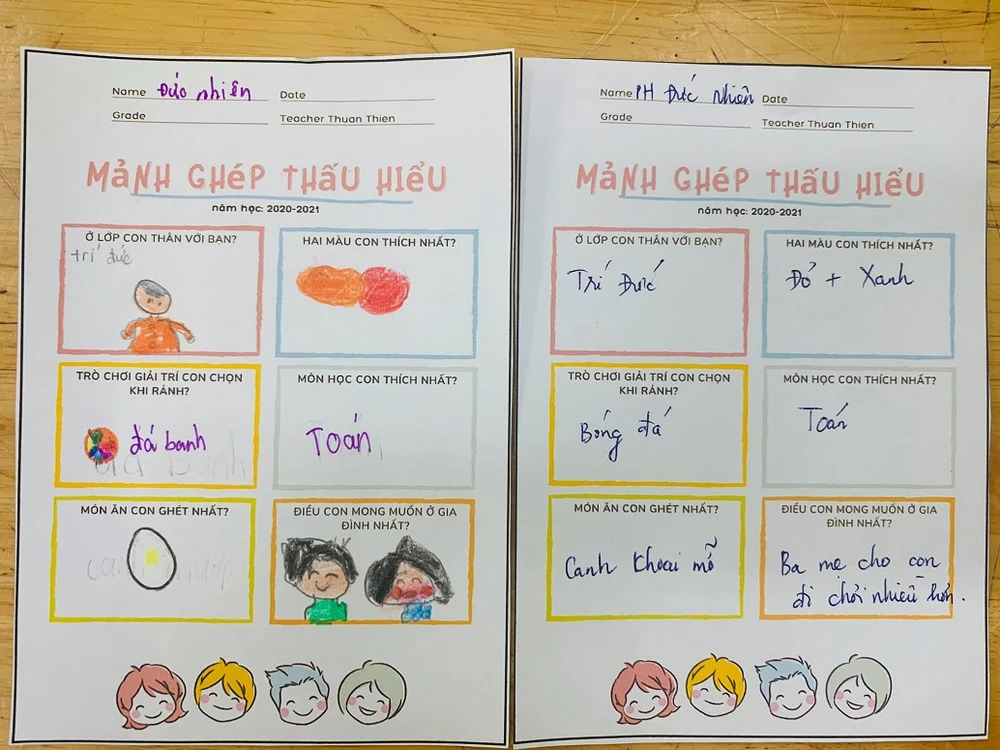 Name Đức nhiên Date
Grade Teacher Thuan Thien
MẢNH GHÉP THẤU HIỂU
năm học: 2020-2021
Ở LỚP CON THÂN VỚI BẠN?
trí đức
HAI MÀU CON THÍCH NHẤT?
TRÒ CHƠI GIẢI TRÍ CON CHỌN
KHI RẢNH?
đá banh
MÔN HỌC CON THÍCH NHẤT?
Toán
MÓN ĂN CON GHÉT NHẤT?
ĐIỀU CON MONG MUỐN Ở GIA
ĐÌNH NHẤT?
Name PH Đức Nhiên Date
Grade Teacher Thuan Thien
MẢNH GHÉP THẤU HIỂU
năm học: 2020-2021
Ở LỚP CON THÂN VỚI BẠN?
Trí Đức
HAI MÀU CON THÍCH NHẤT?
Đỏ + Xanh
TRÒ CHƠI GIẢI TRÍ CON CHỌN
KHI RẢNH?
Bóng đá
MÔN HỌC CON THÍCH NHẤT?
Toán
MÓN ĂN CON GHÉT NHẤT?
Canh khoai mỡ
ĐIỀU CON MONG MUỐN Ở GIA
ĐÌNH NHẤT?
Ba mẹ cho con
đi chơi nhiều hơn.